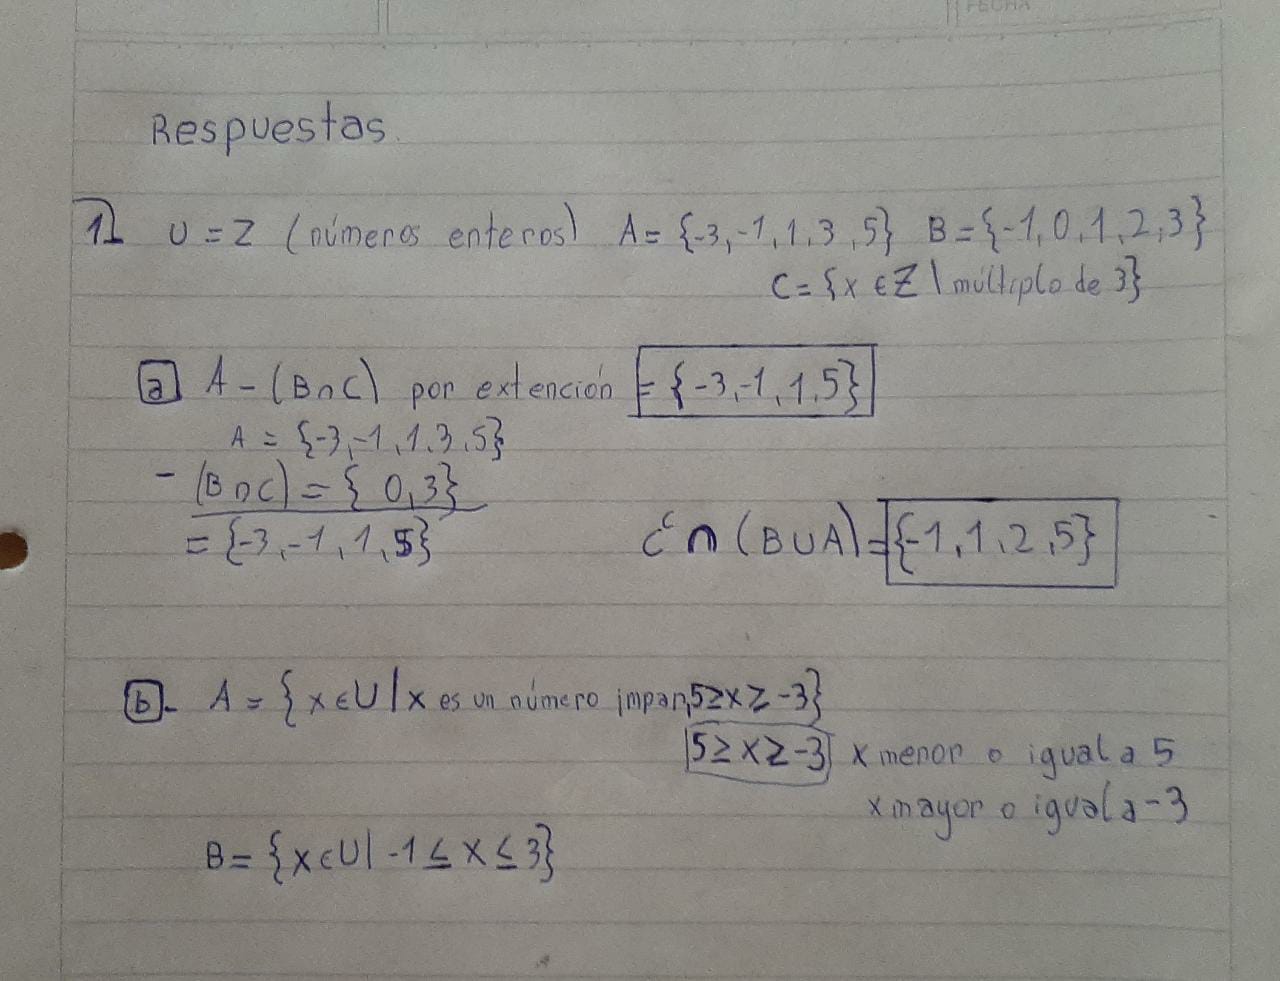 FECHA
Respuestas.
1) U = Z (números enteros) A = {-3,-1,1,3,5} B = {-1,0,1,2,3}
C = {x ∈ Z | múltiplo de 3}
a) A - (B∩C) por extención = {-3,-1,1,5}
A = {-3,-1,1,3,5}
- (B∩C) = { 0,3}
= {-3,-1,1,5}
Cᶜ ∩ (B∪A) = {-1,1,2,5}
b). A = {x∈U | x es un número impar, 5≥x≥-3}
5≥x≥-3 x menor o igual a 5
x mayor o igual a -3
B = {x∈U | -1≤x≤3}